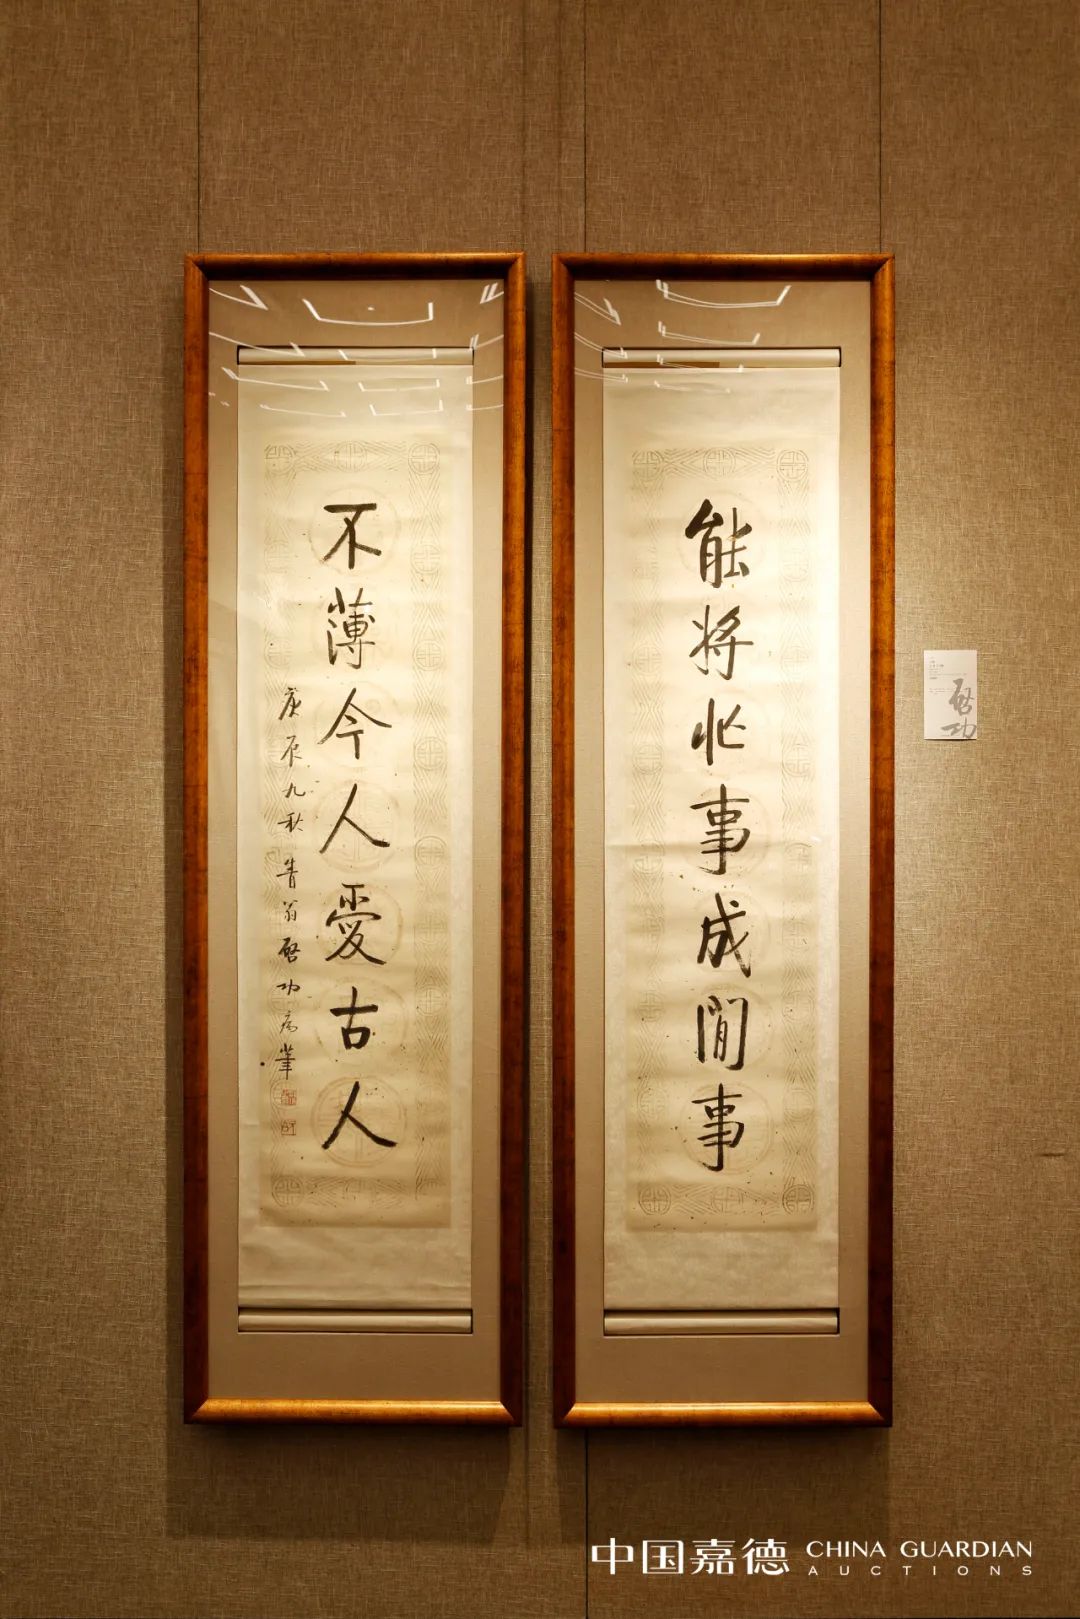 能將忙事成閒事
不薄今人愛古人
庚辰九秋 眚翁啓功病筆
啓功
中国嘉德 CHINA GUARDIAN
AUCTIONS